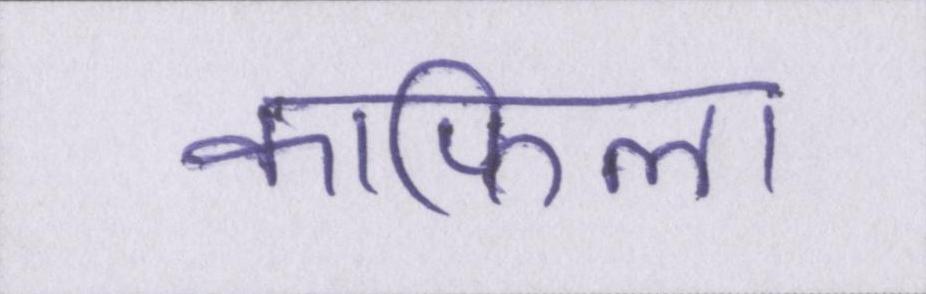 काफिला